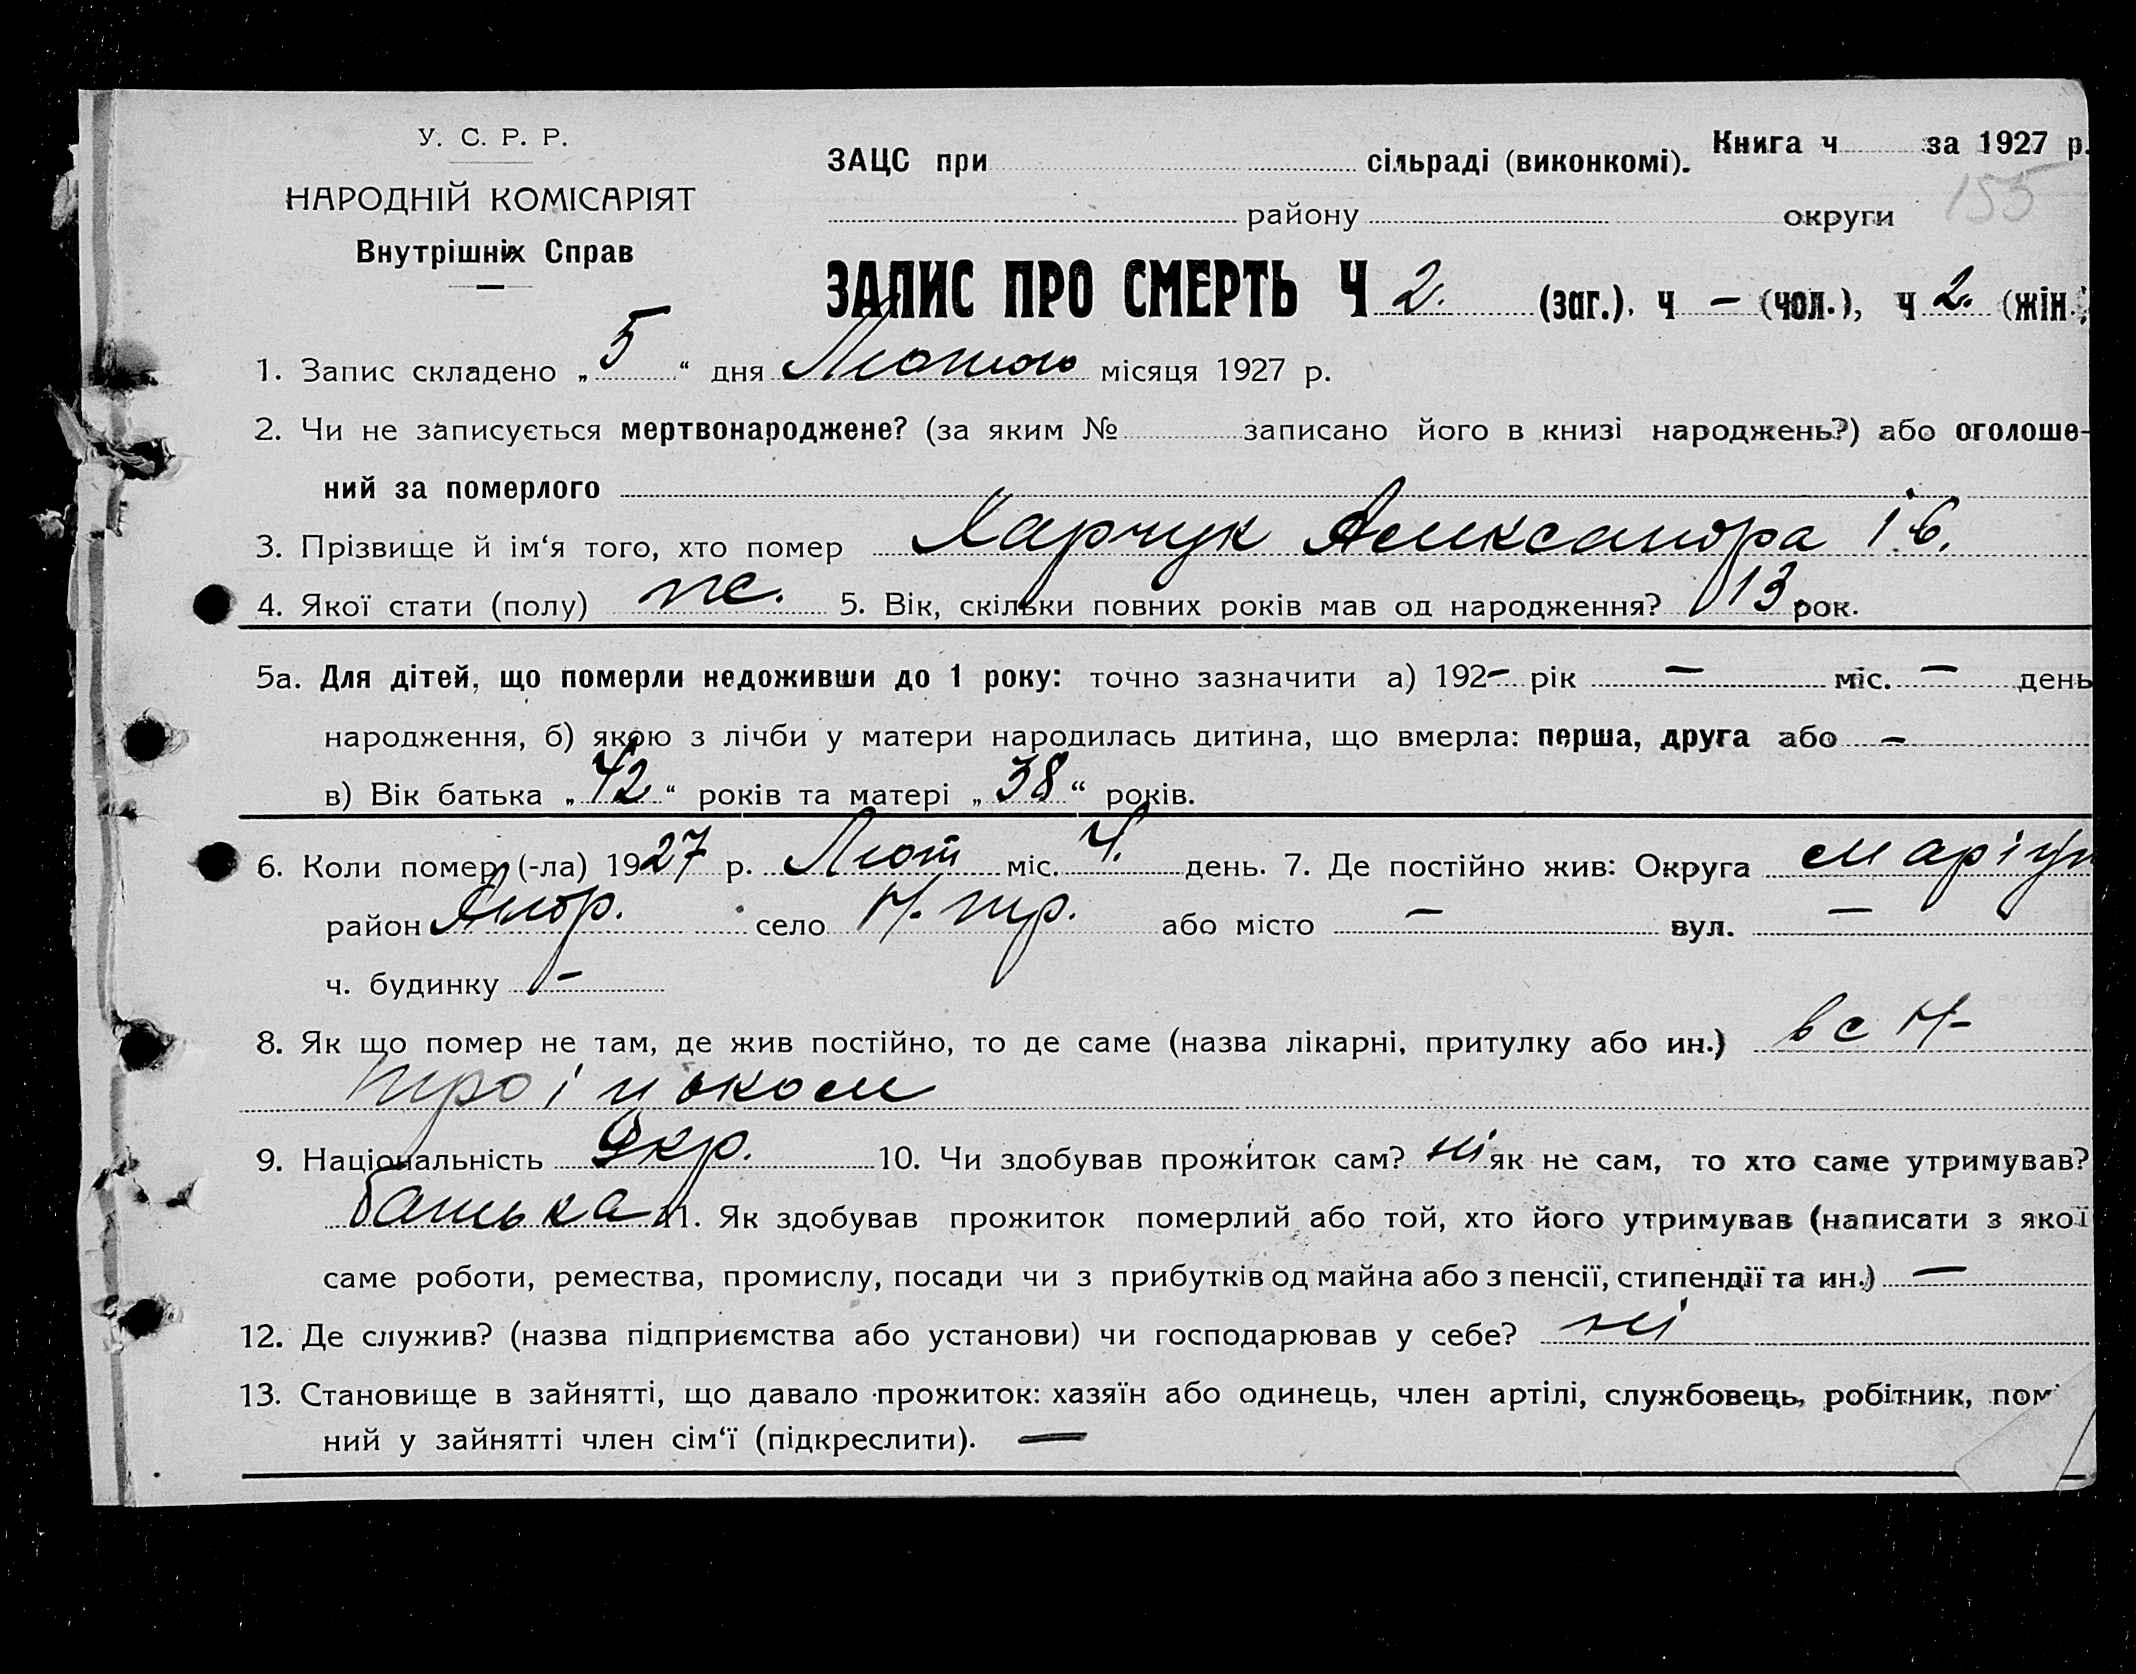 У. С. Р. Р.
НАРОДНІЙ КОМІСАРІЯТ
Внутрішніх Справ
ЗАЦС при сільраді (виконкомі). Книга ч за 1927 р.
155
району округи
ЗАПИС ПРО СМЕРТЬ Ч 2. (заг.). ч – (чол.), ч 2. (жін.)
1. Запис складено „5“ дня Лютого місяця 1927 р.
2. Чи не записується мертвонароджене? (за яким № записано його в книзі народжень?) або оголоше-
ний за померлого
3. Прізвище й ім‘я того, хто помер Харчук Александра Ів.
4. Якої стати (полу) ж. 5. Вік, скільки повних років мав од народження? 13 рок.
5а. Для дітей, що померли недоживши до 1 року: точно зазначити а) 192– рік – міс. – день
народження, б) якою з лічби у матери народилась дитина, що вмерла: перша, друга або –
в) Вік батька „42“ років та матері „38“ років.
6. Коли помер (-ла) 1927 р. Лют міс. 4. день. 7. Де постійно жив: Округа Маріуп
район село Н. тр. або місто – вул. –
ч. будинку –
8. Як що помер не там, де жив постійно, то де саме (назва лікарні, притулку або ин.) в с Н-
Троіцьком
9. Національність Укр. 10. Чи здобував прожиток сам? ні як не сам, то хто саме утримував?
батька 11. Як здобував прожиток померлий або той, хто його утримував (написати з якої
саме роботи, ремества, промислу, посади чи з прибутків од майна або з пенсії, стипендії та ин.) –
12. Де служив? (назва підприємства або установи) чи господарював у себе? ні
13. Становище в зайнятті, що давало прожиток: хазяїн або одинець, член артілі, службовець, робітник, пом
ний у зайнятті член сім‘ї (підкреслити). –